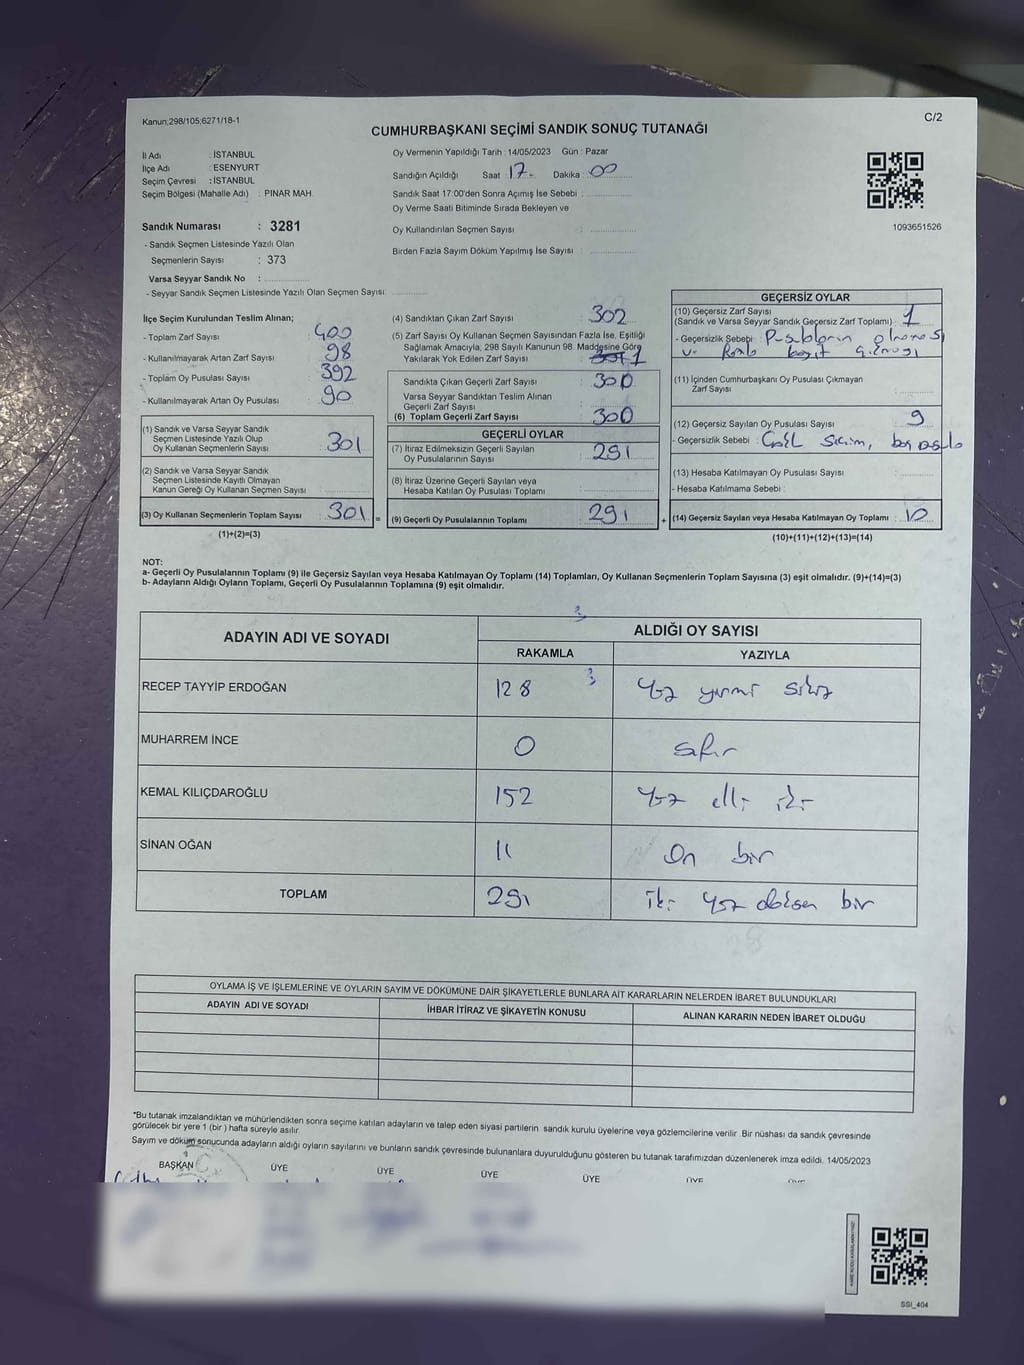 Kanun;298/105;6271/18-1
C/2
CUMHURBAŞKANI SEÇİMİ SANDIK SONUÇ TUTANAĞI
İl Adı : İSTANBUL
İlçe Adı : ESENYURT
Seçim Çevresi : İSTANBUL
Seçim Bölgesi (Mahalle Adı) : PINAR MAH.
Sandık Numarası : 3281
- Sandık Seçmen Listesinde Yazılı Olan
Seçmenlerin Sayısı : 373
Varsa Seyyar Sandık No :
- Seyyar Sandık Seçmen Listesinde Yazılı Olan Seçmen Sayısı:
Oy Vermenin Yapıldığı Tarih : 14/05/2023 Gün : Pazar
Sandığın Açıldığı Saat 17 - Dakika : 00
Sandık Saat 17:00'den Sonra Açımış İse Sebebi :
Oy Verme Saati Bitiminde Sırada Bekleyen ve
Oy Kullandırılan Seçmen Sayısı :
Birden Fazla Sayım Döküm Yapılmış İse Sayısı :
1093651526
İlçe Seçim Kurulundan Teslim Alınan;
- Toplam Zarf Sayısı : 400
- Kullanılmayarak Artan Zarf Sayısı : 98
- Toplam Oy Pusulası Sayısı : 392
- Kullanılmayarak Artan Oy Pusulası : 90
(1) Sandık ve Varsa Seyyar Sandık
Seçmen Listesinde Yazılı Olup
Oy Kullanan Seçmenlerin Sayısı : 301
(2) Sandık ve Varsa Seyyar Sandık
Seçmen Listesinde Kayıtlı Olmayan
Kanun Gereği Oy Kullanan Seçmen Sayısı :
(3) Oy Kullanan Seçmenlerin Toplam Sayısı : 301 =
(1)+(2)=(3)
(4) Sandıktan Çıkan Zarf Sayısı : 302
(5) Zarf Sayısı Oy Kullanan Seçmen Sayısından Fazla İse, Eşitliği
Sağlamak Amacıyla, 298 Sayılı Kanunun 98. Maddesine Göre
Yakılarak Yok Edilen Zarf Sayısı : 1
Sandıkta Çıkan Geçerli Zarf Sayısı : 300
Varsa Seyyar Sandıktan Teslim Alınan
Geçerli Zarf Sayısı :
(6) Toplam Geçerli Zarf Sayısı : 300
GEÇERLİ OYLAR
(7) İtiraz Edilmeksizin Geçerli Sayılan
Oy Pusulalarının Sayısı : 291
(8) İtiraz Üzerine Geçerli Sayılan veya
Hesaba Katılan Oy Pusulası Toplamı :
(9) Geçerli Oy Pusulalarının Toplamı : 291 +
GEÇERSİZ OYLAR
(10) Geçersiz Zarf Sayısı
(Sandık ve Varsa Seyyar Sandık Geçersiz Zarf Toplamı) : 1
- Geçersizlik Sebebi : olmaması
(11) İçinden Cumhurbaşkanı Oy Pusulası Çıkmayan
Zarf Sayısı :
(12) Geçersiz Sayılan Oy Pusulası Sayısı : 9
- Geçersizlik Sebebi : seçim, boş pusula
(13) Hesaba Katılmayan Oy Pusulası Sayısı :
- Hesaba Katılmama Sebebi :
(14) Geçersiz Sayılan veya Hesaba Katılmayan Oy Toplamı : 10
(10)+(11)+(12)+(13)=(14)
NOT:
a- Geçerli Oy Pusulalarının Toplamı (9) ile Geçersiz Sayılan veya Hesaba Katılmayan Oy Toplamı (14) Toplamları, Oy Kullanan Seçmenlerin Toplam Sayısına (3) eşit olmalıdır. (9)+(14)=(3)
b- Adayların Aldığı Oyların Toplamı, Geçerli Oy Pusulalarının Toplamına (9) eşit olmalıdır.
3
ADAYIN ADI VE SOYADI ALDIĞI OY SAYISI
RAKAMLA YAZIYLA
RECEP TAYYİP ERDOĞAN 128 3 Yüz yirmi sekiz
MUHARREM İNCE 0 sıfır
KEMAL KILIÇDAROĞLU 152 Yüz elli iki
SİNAN OĞAN 11 On bir
TOPLAM 291 iki yüz doksan bir
OYLAMA İŞ VE İŞLEMLERİNE VE OYLARIN SAYIM VE DÖKÜMÜNE DAİR ŞİKAYETLERLE BUNLARA AİT KARARLARIN NELERDEN İBARET BULUNDUKLARI
ADAYIN ADI VE SOYADI İHBAR İTİRAZ VE ŞİKAYETİN KONUSU ALINAN KARARIN NEDEN İBARET OLDUĞU
*Bu tutanak imzalandıktan ve mühürlendikten sonra seçime katılan adayların ve talep eden siyasi partilerin sandık kurulu üyelerine veya gözlemcilerine verilir. Bir nüshası da sandık çevresinde
görülecek bir yere 1 (bir ) hafta süreyle asılır.
Sayım ve döküm sonucunda adayların aldığı oyların sayılarını ve bunların sandık çevresinde bulunanlara duyurulduğunu gösteren bu tutanak tarafımızdan düzenlenerek imza edildi. 14/05/2023
BAŞKAN ÜYE ÜYE ÜYE ÜYE ÜYE ÜYE
SSI_404